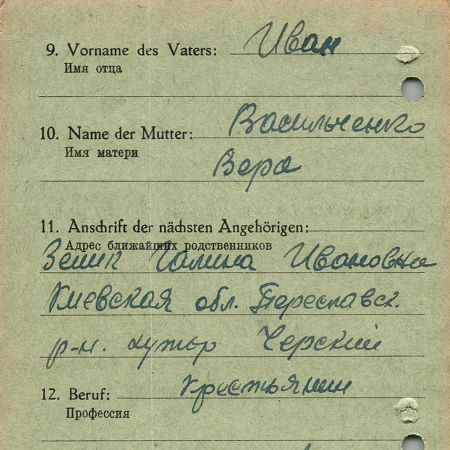 9. Vorname des Vaters: Иван
Имя отца
10. Name der Mutter: Васильченко
Имя матери
Вера
11. Anschrift der nächsten Angehörigen:
Адрес ближайших родственников
Галина Ивановна
Киевская обл. Переславск.
р-н. хутор Черский
12. Beruf: Крестьянин
Профессия